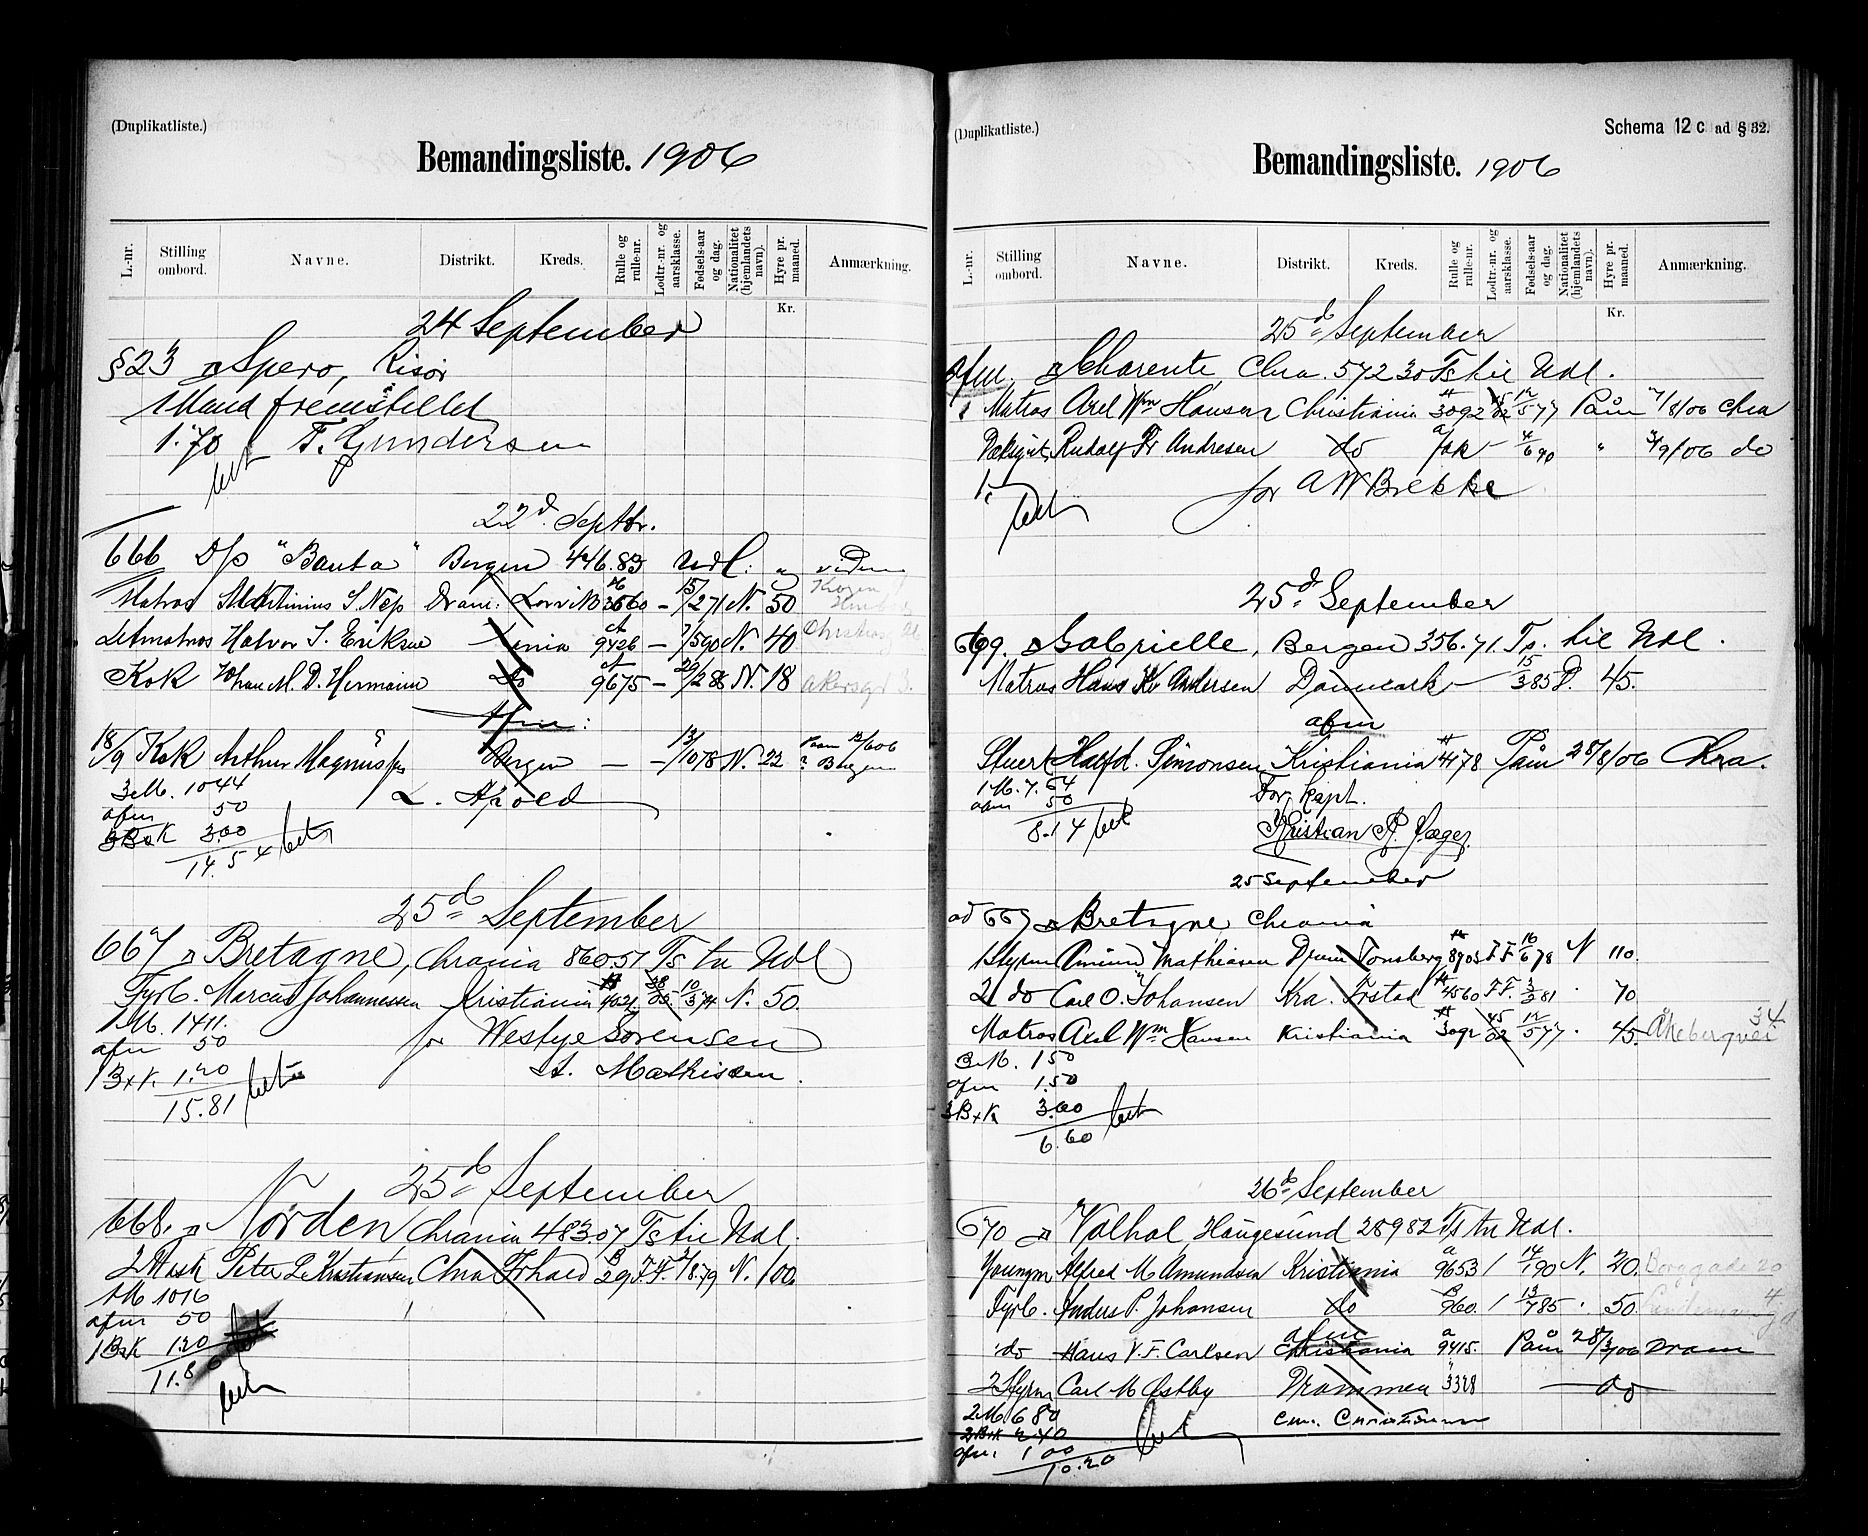 (Duplikatliste.)
Bemandingsliste. 1906
L.-nr. Stilling ombord. Navne. Distrikt. Kreds. Rulle og rulle-nr. Lodtr.-nr. og aarsklasse. Fødsels-aar og dag. Nationalitet (hjemlandets navn). Hyre pr. maaned. Anmærkning.
Kr.
24 September
§23 Spero, Risör
1 Mand fremstillet
1.70 T. Gundersen
22d. Septbr.
666 D/s "Bauta" Bergen 446.83 Udl:
Matros Martinius S. Næs Dram: 3660 — 15/2 71 N. 50
Letmatros Halvor I. Eriksen 9426 — 7/5 90 N. 40
Kok Johan M. D. Hermann do 9675 — 29/2 88 N. 18 Akersgt 3.
Afm:
18/9 Kok Arthur Magnus Bergen — — 13/10 78 N. 22
3 M. 1044 L. Apold
afm 50
3 B x K 3.00
14.54
25de September
667 Bretagne, Chrania 860.51 Ts til Udl
Fyrb. Marcus Johannessen Kristiania 10/3 74 N. 50.
1 M. 1411. for Westye Sørensen
afm 50 St. Mathisen.
1 B x K. 1.20
15.81
25de September
668. Norden, Chrania 483.07 Ts til Udl.
2 Mask Peter L Kristiansen Chra 29 F.F. 8.79 N. 100
1 M 1016
afm 50
1 BxK 1.20
11.8
(Duplikatliste.) Schema 12 c ad § 32.
Bemandingsliste. 1906
L.-nr. Stilling ombord. Navne. Distrikt. Kreds. Rulle og rulle-nr. Lodtr.-nr. og aarsklasse. Fødsels-aar og dag. Nationalitet (hjemlandets navn). Hyre pr. maaned. Anmærkning.
Kr.
25de September
Afm. Charente, Chra. 572 30 Ts til Udl.
1 Matros Axel Wm Hansen Christiania 3092 45/02 12/5 77 Påm 7/8/06 Chra
Dæksgut Rudolf Fr Andresen do 4/6 90 " 3/9/06 do
1. for A W Brekke
25de September
669. Gabrielle, Bergen 356.71. Ts. til Udl.
Matros Hans Kr Andersen Danmark — 15/3 85 D. 45.
afm
Stuert Halfd. Simonsen Kristiania 4178 Påm 28/8/06 Chra.
1 M. 7.64 For kapt.
afm 50 Kristian
8.14
25 September
ad 667 Bretagne Chrania
1 Styrm Amund Mathiasen Dram Tønsberg 8903 F F 16/6 78 N 110.
2 do Carl O. Johansen Kra. Frstad 4560 F F. 3/3 81 . 70
Matros Axel Wm Hansen Kristiania 3092 45/02 12/5 77. 45. Åkebergvei 34
3 M. 1 50
afm 1.50
3 B x K 3.60
6.60
26de September
670 Valhal Haugesund 289 82 Ts til Udl.
Youngm Alfred M Amundsen Kristiania 9653 / 14/1 90 N. 20. Borggade 20
Fyrb. Anders P. Johansen do 960. / 13/7 85 . 50
afm
do Hans V. F. Carlsen Christiania 9415. Påm 28/3/06 Dram
2 Styrm Carl M Østby Drammen 3328 — do
2 M 6 80
2 BxK 2 40
afm. 1 00
10.20